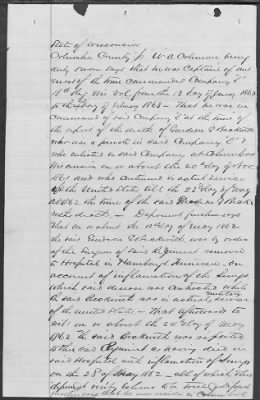 State of Wisconsin
Columbia County } ss W. A. Coleman being
duly sworn says that he was Captain of and
the time commanded Company "E"
18th Reg Wis Vol from the 12 day of Jany 1862
to the 4 day of February 1863 - That he was in
command of said Company "E" at the time of
the report of the death of Gordon E Beckwith
who was a private in said Company "E" &
who enlisted in said Company at Columbus
Wisconsin on or about the 20 day of Nov
1861 and who continued in actual service
of the United States till the 22 day of May
1862 the time of the said
death - Deponent further says
that on or about the day of May 1862
the said Gordon E Beckwith was by order
of the Surgeon of said Regiment removed
to Hospital in Hamburg Tennessee on
account of inflamation of the Lungs
which said disease was contracted while
the said Beckwith was in actual military service
of the United States - That afterward to
wit on or about the 25 day of May
1862 the said Beckwith was reported
to the said Regiment as having died in
said Hospital with inflamation of Lungs
on the 22 of May 1862 - all of which this
deponent verily believes to be true